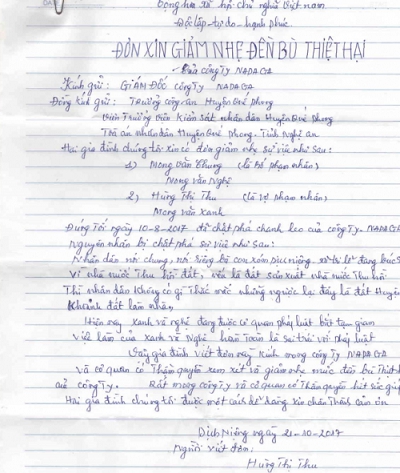 Cộng hòa xã hội chủ nghĩa Việt nam
Độc lập - tự do - hạnh phúc
ĐƠN XIN GIẢM NHẸ ĐỀN BÙ THIỆT HẠI
Của công ty NADAGA
Kính gửi: GIÁM ĐỐC công TY NADAGA
Đồng kính gửi: Trưởng công an Huyện Quế Phong
Viện Trưởng Viện Kiểm sát nhân dân Huyện Quế Phong
Toà án nhân dân Huyện Quế Phong. Tỉnh Nghệ an
Hai gia đình chúng tôi xin có đơn giảm nhẹ sự việc như sau:
1) Mong Văn Chung (là bố phạm nhân)
Mong văn Nghệ
2) Hùng Thị Thu (là vợ phạm nhân)
Mong văn xanh
Đúng Tối ngày 10-8-2017 đã chặt phá chanh leo của công ty NADAGA
Nguyên nhân bị chặt phá sự việc như sau:
Nhân dân nói chung, nói riêng bà con xóm
Vì nhà nước Thu hồi đất, nếu là đất sản xuất nhà nước Thu hồi
Thì nhân dân không có gì thắc mắc nhưng ngược lại đây là đất Huyện
đất lâm nhân
Hiện nay xanh và nghệ đang được cơ quan pháp luật bắt tạm giam
Việc làm của xanh và Nghệ hoàn toàn là sai trái với pháp luật
Vậy gia đình viết đơn này kính mong công ty NADAGA
Và cơ quan có thẩm quyền xem xét và giảm nhẹ mức đền bù thiệt
công ty. Rất mong công ty và cơ quan có thẩm quyền hết sức giúp
Hai gia đình chúng tôi được một xin chân thành cảm ơn
Dịch Miêng ngày 21-10-2017
Người viết đơn:
Hùng Thị Thu